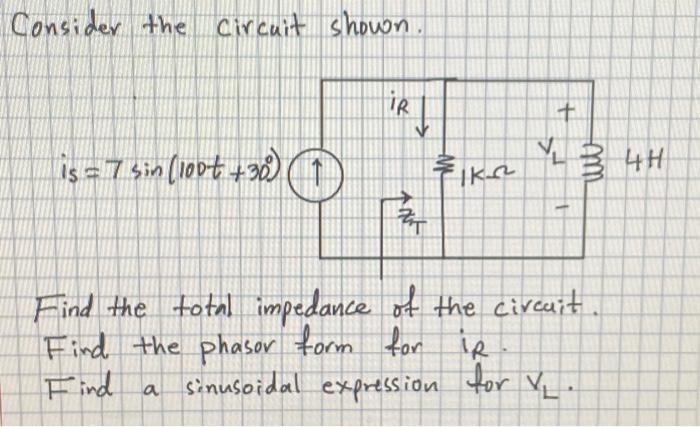 Consider the circuit shown.
iR
+
is = 7 sin(100t + 30°)
1KΩ
VL
4H
ZT
-
Find the total impedance of the circuit.
Find the phasor form for iR.
Find a sinusoidal expression for VL.